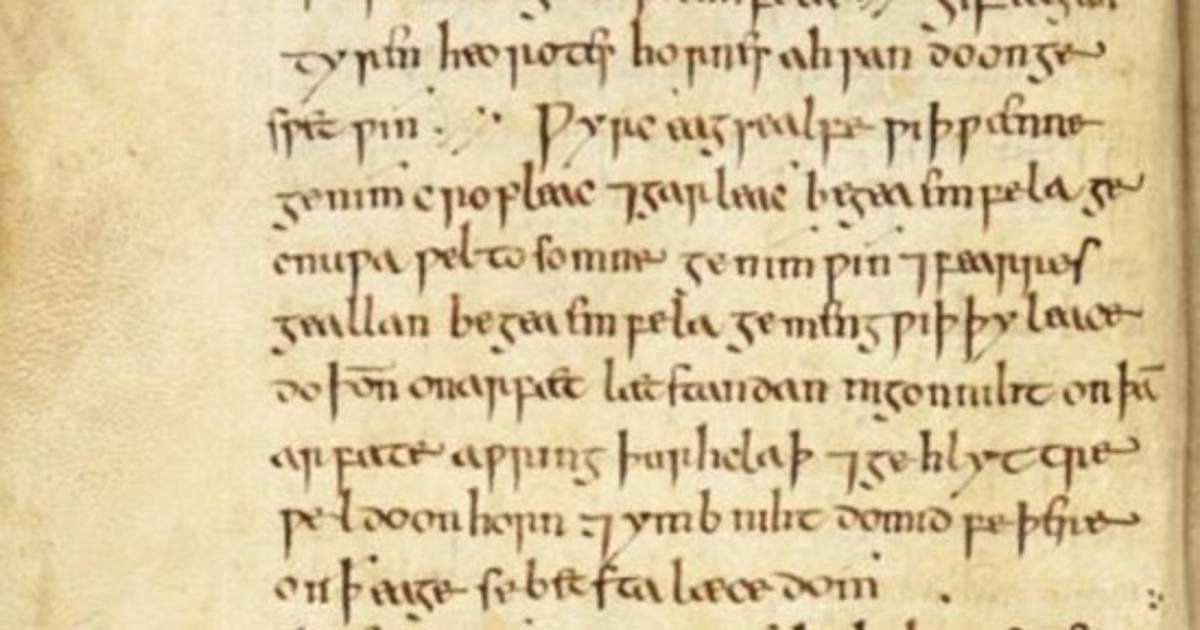 tyren heorotes hornes ahsan do on ge
swet win. Wyrc eagsealfe wiþ wænne
genim cropleac ⁊ garleac begea emfela ge
cnuwa wel tosomne genim win ⁊ fearres
geallan begea emfela gemeng wiþ þy leace
do þōn on arfæt læt standan nigon niht on þā
arfæte awring þurh claþ ⁊ gehlyttre
wel do on horn ⁊ ymb niht do mid feþre
on þ eage se betsta læcedom